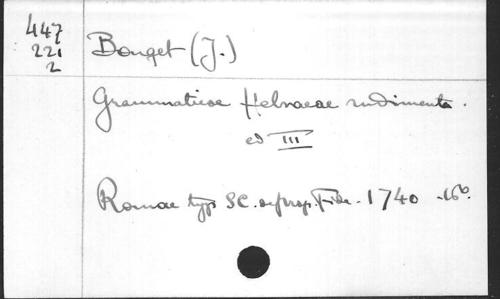 447
221
2
Bouget (J.)
Grammaticae Hebraeae rudimenta.
ed III
Romae typ SC. de prop. Fide. 1740 -16°.